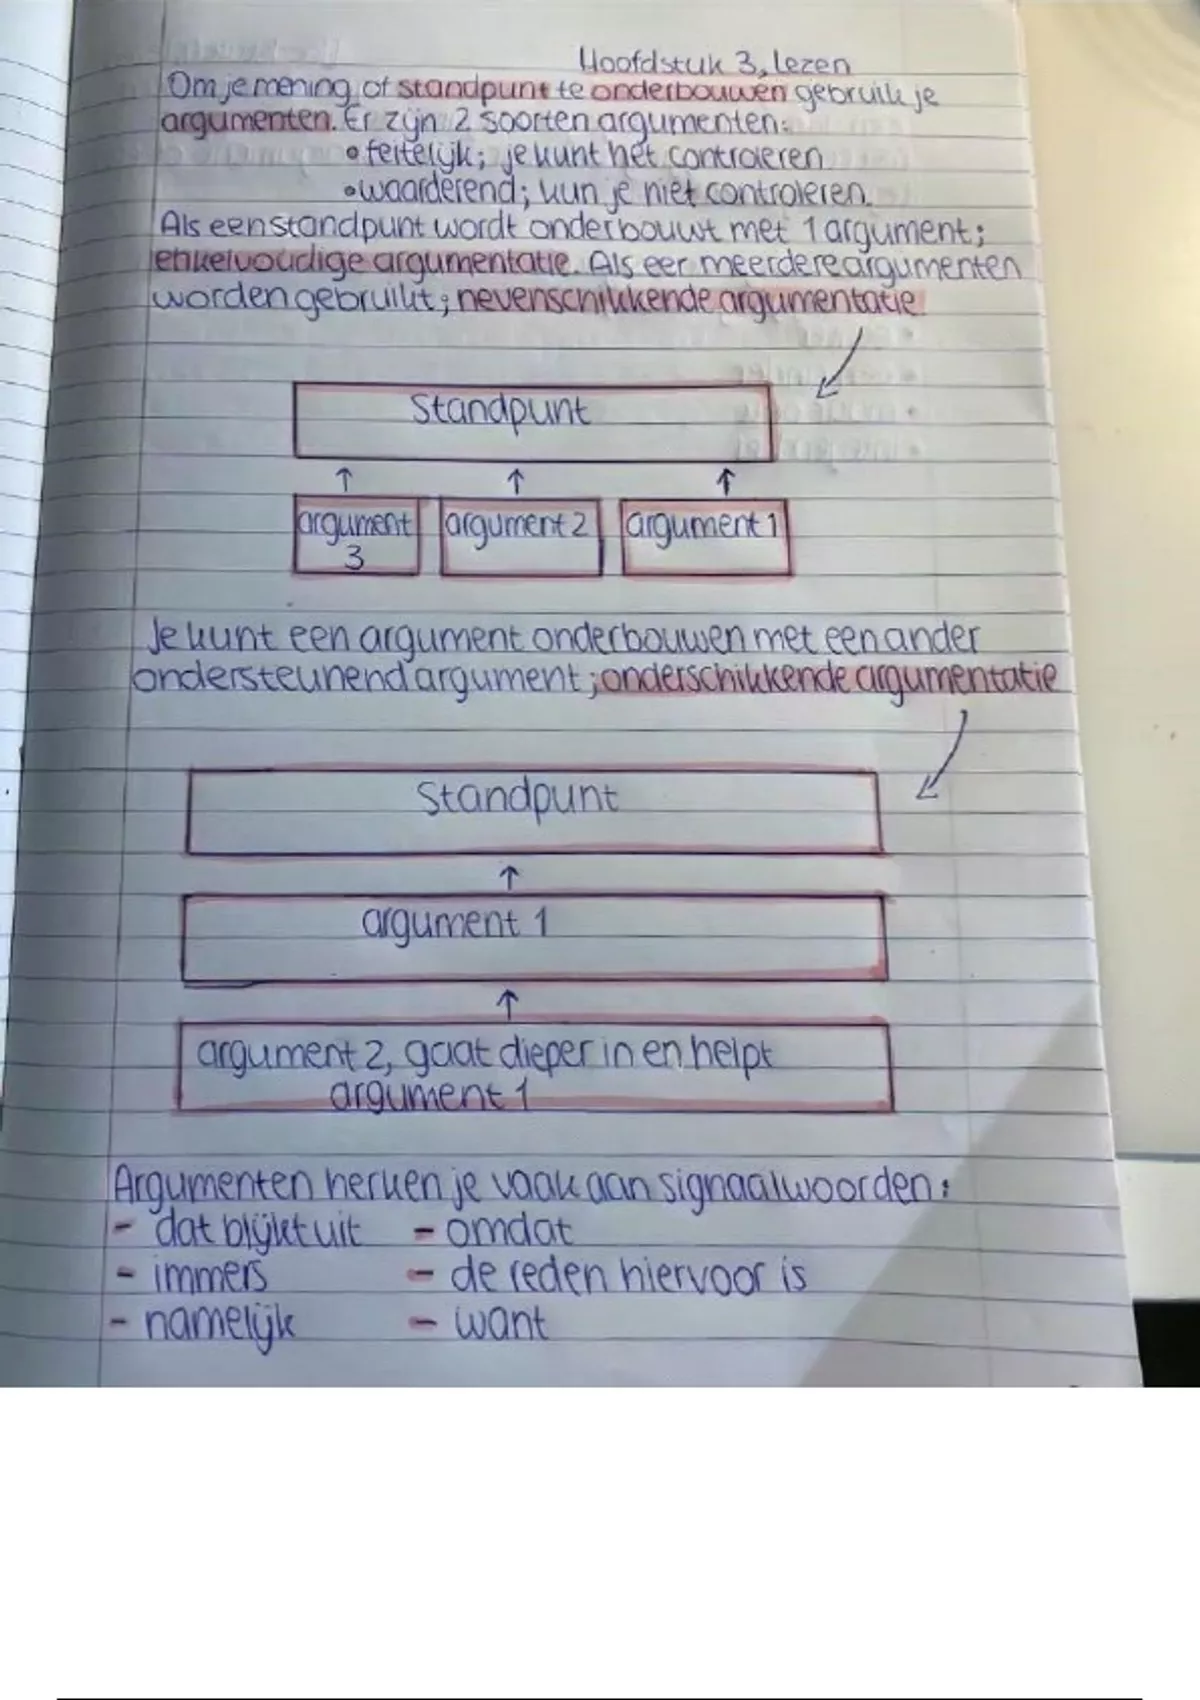 Hoofdstuk 3, lezen
Om je mening of standpunt te onderbouwen gebruik je
argumenten. Er zijn 2 soorten argumenten:
• feitelijk; je kunt het controleren
• waarderend; kun je niet controleren.
Als een standpunt wordt onderbouwt met 1 argument;
enkelvoudige argumentatie. Als eer meerdere argumenten
worden gebruikt; nevenschikkende argumentatie.
Standpunt
↑ ↑ ↑
argument 3 argument 2 argument 1
Je kunt een argument onderbouwen met een ander
ondersteunend argument; onderschikkende argumentatie
Standpunt
↑
argument 1
↑
argument 2, gaat dieper in en helpt
argument 1
Argumenten herken je vaak aan signaalwoorden:
- dat blijkt uit - omdat
- immers - de reden hiervoor is
- namelijk - want